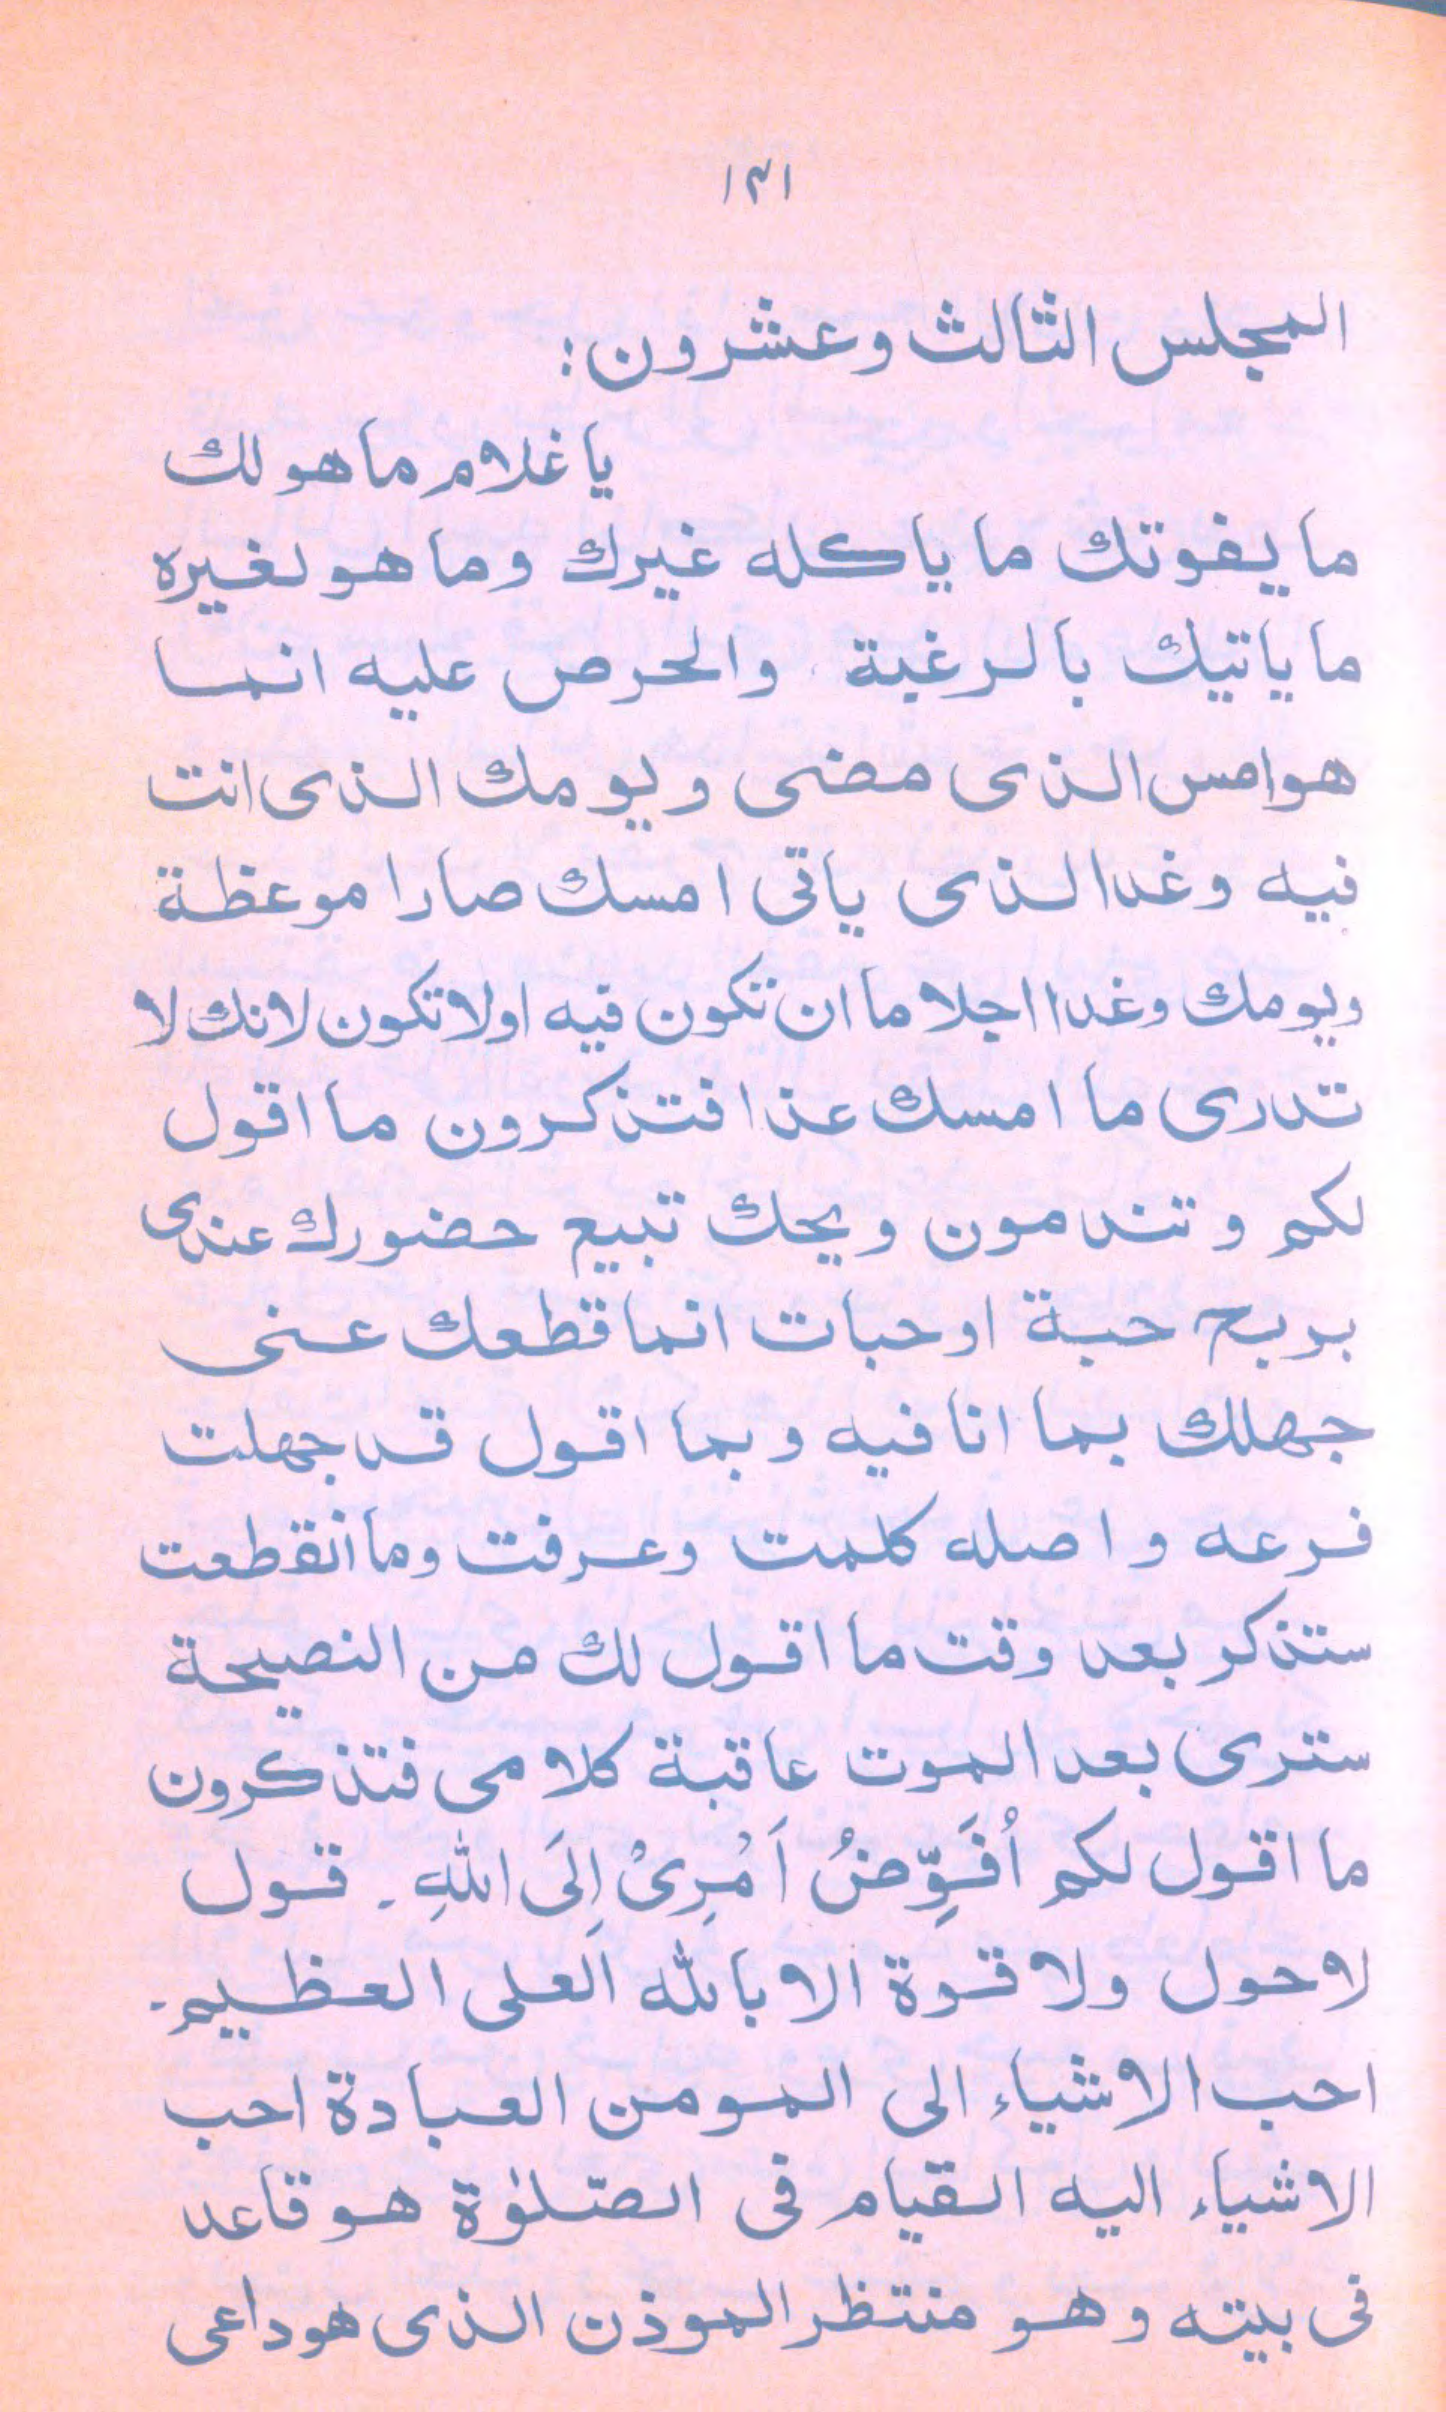 ۱۳۱
المجلس الثالث وعشرون:
يا غلام ما هو لك
ما يفوتك ما ياكله غيرك وما هو لغيره
ما ياتيك بالرغبة والحرص عليه انما
هو امس الذى مضى ويومك الذى انت
فيه وغدا الذى ياتى امسك صارا موعظة
ويومك وغدا اجلا ما ان تكون فيه اولا تكون لانك لا
تدرى ما امسك عذا فتذكرون ما اقول
لكم وتندمون ويحك تبيع حضورك عندى
بربح حبة او حبات انما قطعك عنى
جهلك بما انا فيه وبما اقول قد جهلت
فرعه واصله كلمت وعرفت وما أنقطعت
ستذكر بعد وقت ما اقول لك من النصيحة
سترى بعد الموت عاقبة كلامى فتذكرون
ما اقول لكم اُفَوِّضُ اَمْرِىْ اِلَى اللهِ۔ قول
لا حول ولا قوة الا بالله العلى العظيم۔
احب الاشياء الى المومن العبادة احب
الاشياء اليه القيام فى الصّلوٰة هو قاعد
فى بيته وهو منتظر الموذن الذى هو داعى